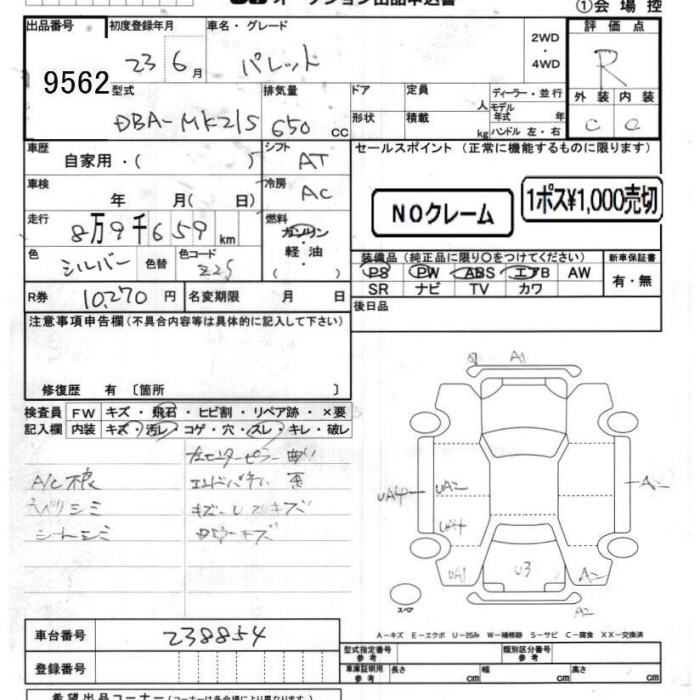 オークション出品申込書
①会場控
出品番号 9562
初度登録年月 23 6月
車名・グレード パレット
2WD・4WD
評価点 R
外装 内装
C C
型式 DBA-MK21S
排気量 650 cc
ドア 形状
定員 人
積載 kg
ディーラー・並行
モデル年式 年
ハンドル 左・右
車歴 自家用・( )
シフト AT
セールスポイント (正常に機能するものに限ります)
車検 年 月( 日)
冷房 AC
NOクレーム
1ポス¥1,000売切
走行 8万9千659 km
燃料 ガソリン 軽油 ( )
色 シルバー 色替
色コード Z2S
装備品(純正品に限り○をつけてください)
PS PW ABS エアB AW
SR ナビ TV カワ
新車保証書
有・無
R券 10,270 円
名変期限 月 日
後日品
注意事項申告欄(不具合内容等は具体的に記入して下さい)
修復歴 有 〔箇所 〕
検査員記入欄
FW キズ・飛石・ヒビ割・リペア跡・×要
内装 キズ・汚レ・コゲ・穴・スレ・キレ・破レ
左センターピラー曲り
A/C不良 エンドパネル 歪
シミ
シートシミ
キズ
A1
A2
UA4 UA2
UA4
UA1 U3 A2
A2
スペア
A-キズ E-エクボ U-凹み W-補修跡 S-サビ C-腐食 XX-交換済
車台番号 238854
登録番号
型式指定番号 参考
類別区分番号 参考
車庫証明用 参考 長さ cm 幅 cm 高さ cm
希望出品コーナー(コーナーは各会場により異なります。)